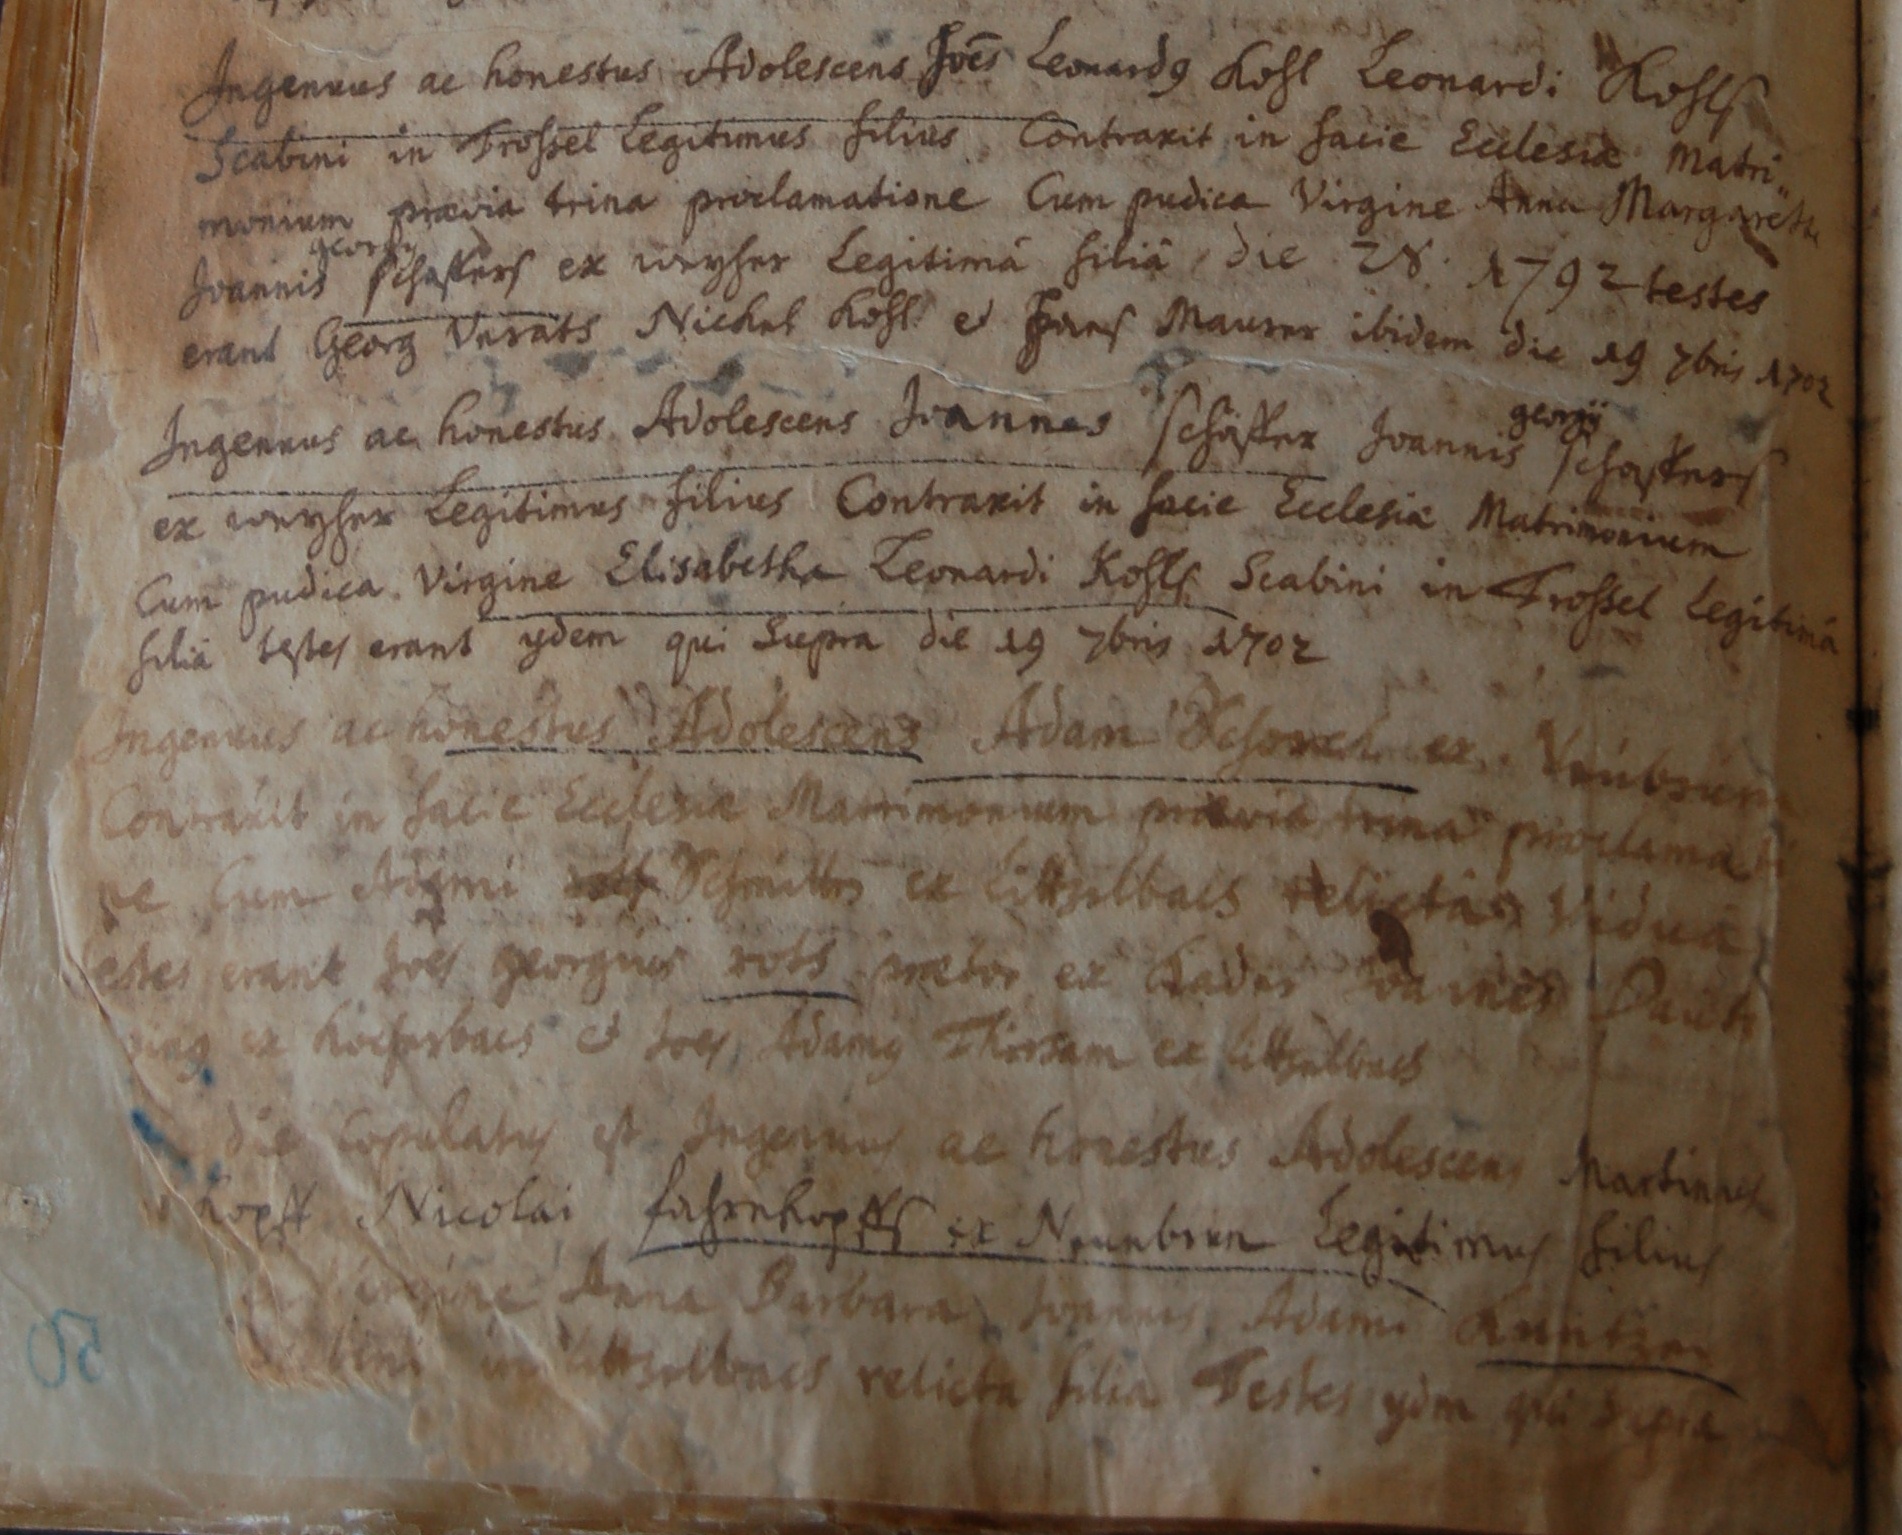 Ingenuus ac honestus Adolescens Joēs Leonardg Kohl Leonardi Kohls
Scabini in Trossel Legitimus filius Contraxit in facie Ecclesiæ Matri„
monium prævia trina proclamatione Cum pudica Virgine Anna Margaretha
georgij
Joannis schaffers ex weyher Legitimâ filiâ die 28. 1792 testes
erant Georg Nickel Kohl et Hans Maurer ibidem die 19 7bris 1702
georgij
Ingenuus ac honestus Adolescens Joannes schäffer Joannis schaffers
ex weyher Legitimus filius Contraxit in facie Ecclesiæ Matrimonium
Cum pudica Virgine Elisabetha Leonardi Kohls Scabini in Trossel Legitimâ
filiâ testes erant ydem qui Supra die 19 7bris 1702
Ingenuus ac honestus Adolescens Adam ex
Contraxit in facie Ecclesiæ Matrimonium prævia trina proclamati
ne Cum Adami Schmitts ex Littzelbach relictâ Viduâ
testes erant Joes georgius roth prætor ex Joannes
ex et Joes Adamg ex Littzelbach
die Copulatus est Ingenuus ac honestus Adolescens Martinus
kopff Nicolai fahrnkopffs ex Neunbrun Legitimus filius
Virgine Anna Barbara Joannis Adami Kuntzen
in Littzelbach relicta filia Testes ydm qui supra
50